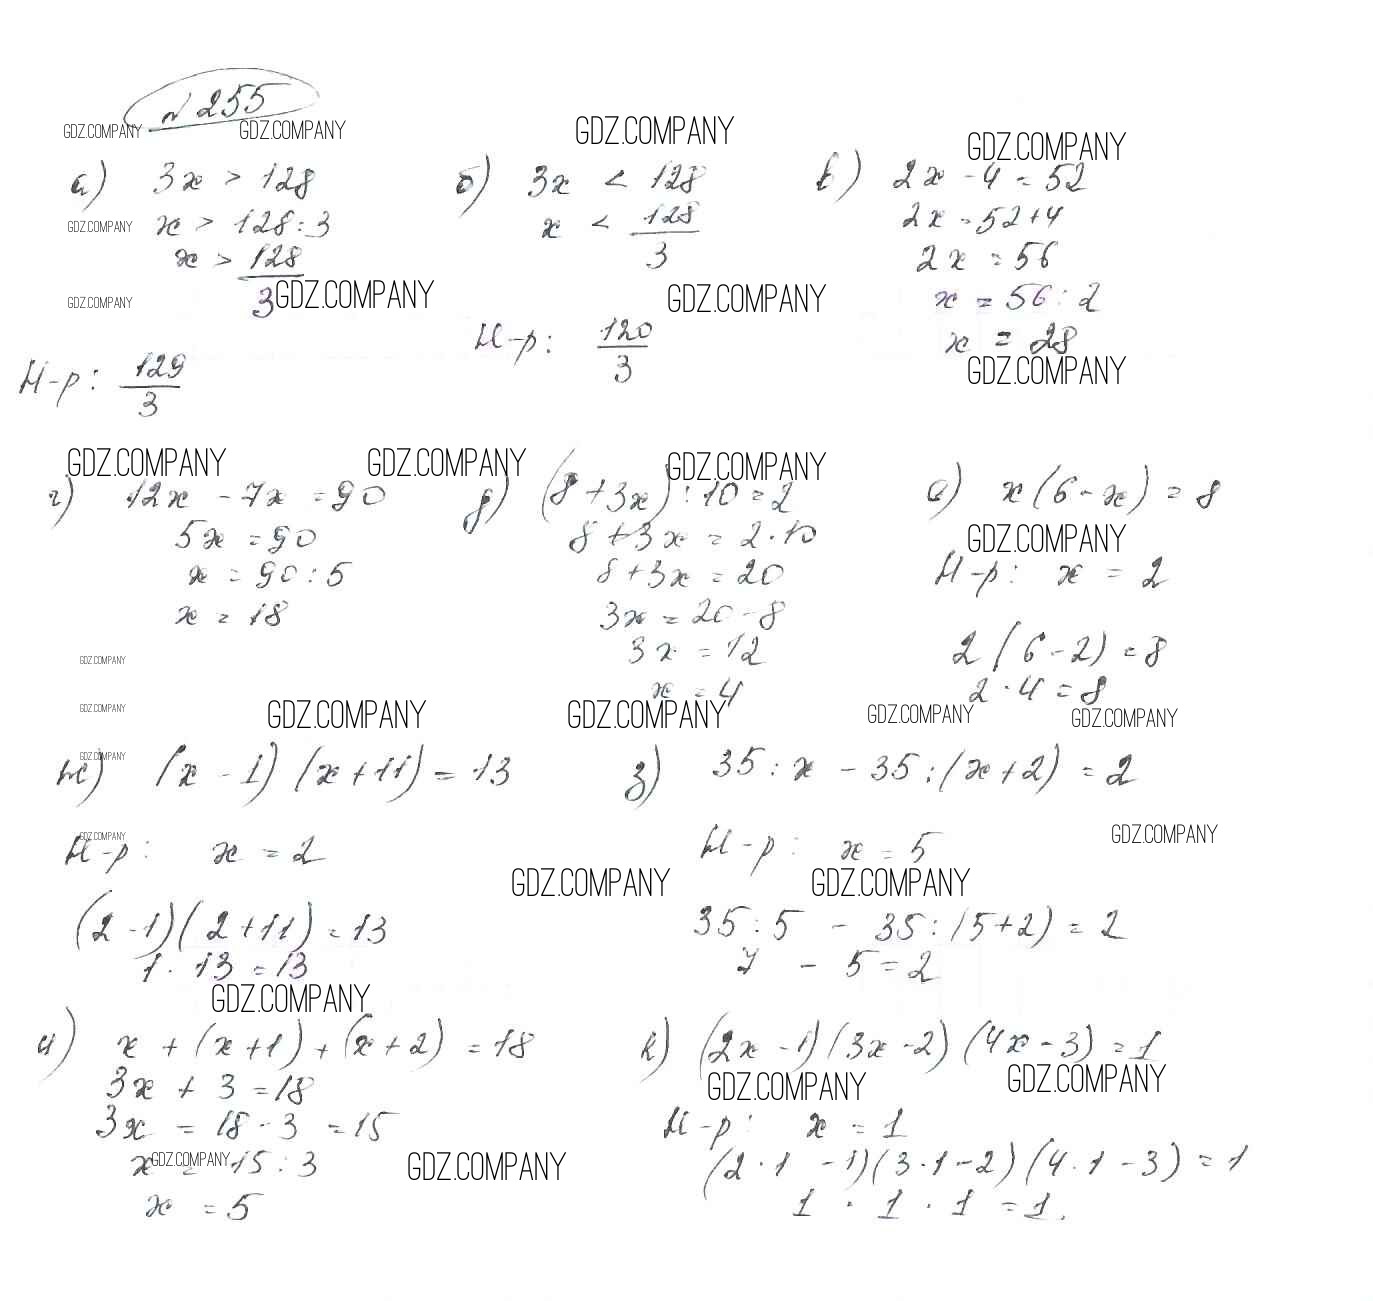 № 255
GDZ.COMPANY GDZ.COMPANY GDZ.COMPANY GDZ.COMPANY
а) 3x > 128 б) 3x < 128 в) 2x - 4 = 52
GDZ.COMPANY x > 128 : 3 x < 128/3 2x = 52 + 4
x > 128/3 2x = 56
GDZ.COMPANY GDZ.COMPANY GDZ.COMPANY x = 56 : 2
Н-р: 129/3 Н-р: 120/3 x = 28
GDZ.COMPANY
GDZ.COMPANY GDZ.COMPANY GDZ.COMPANY
г) 12x - 7x = 90 д) (8 + 3x) : 10 = 2 е) x(6 - x) = 8
5x = 90 8 + 3x = 2 · 10 GDZ.COMPANY
x = 90 : 5 8 + 3x = 20 Н-р: x = 2
x = 18 3x = 20 - 8
GDZ.COMPANY 3x = 12 2(6 - 2) = 8
x = 4 2 · 4 = 8
GDZ.COMPANY GDZ.COMPANY GDZ.COMPANY GDZ.COMPANY GDZ.COMPANY
GDZ.COMPANY
ж) (x - 1)(x + 11) = 13 з) 35 : x - 35 : (x + 2) = 2
GDZ.COMPANY GDZ.COMPANY
Н-р: x = 2 Н-р: x = 5
GDZ.COMPANY GDZ.COMPANY
(2 - 1)(2 + 11) = 13 35 : 5 - 35 : (5 + 2) = 2
1 · 13 = 13 7 - 5 = 2
GDZ.COMPANY
и) x + (x + 1) + (x + 2) = 18 к) (2x - 1)(3x - 2)(4x - 3) = 1
3x + 3 = 18 GDZ.COMPANY GDZ.COMPANY
3x = 18 - 3 = 15 Н-р: x = 1
x = 15 : 3 (2 · 1 - 1)(3 · 1 - 2)(4 · 1 - 3) = 1
GDZ.COMPANY GDZ.COMPANY
x = 5 1 · 1 · 1 = 1.